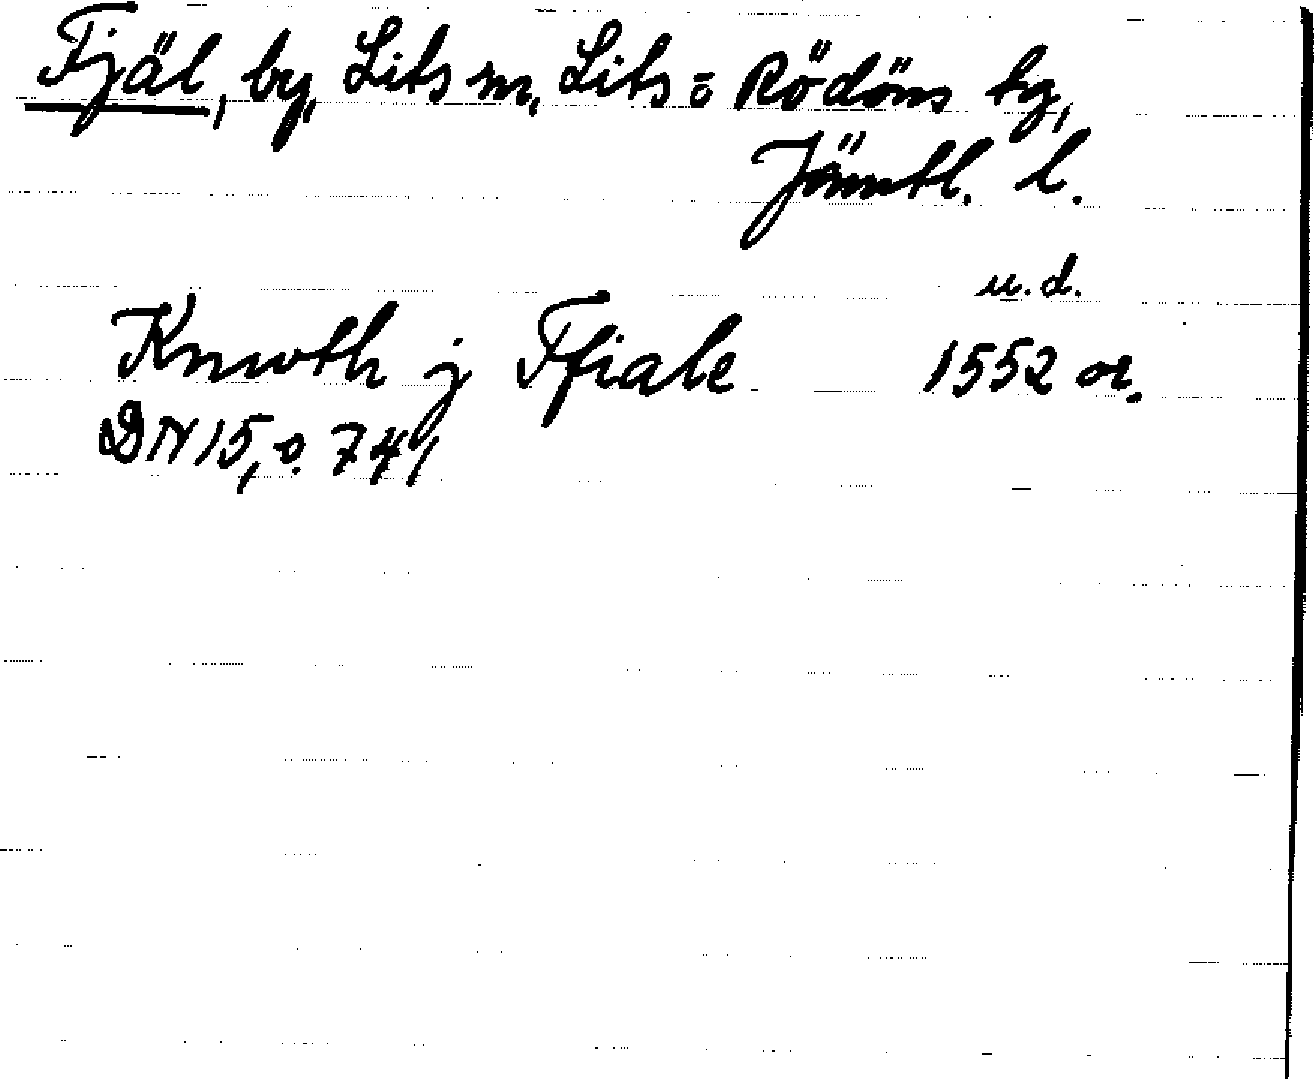 Fjäl, by, Lits sn, Lits o Rödöns tg,
Jämtl. l.
u.d.
Knwth j Ffiale 1552 or.
DN 15, s. 741